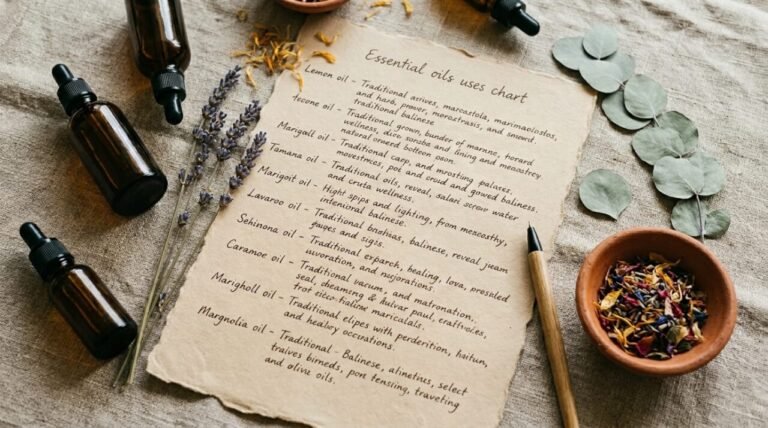 Essential oils uses chart
Lemon oil - Traditional arrives, marcostola, marimaoliostos,
and harb, power, morostrasis, and snowrd
traditional balinese
Tecone oil - Traditional grown, bunder of marnne, torard
wellness, dice sonsba and lining and menostry
natural onowrd botteon pson.
Marigall oil - Traditional carp, and mrosting palaxes,
movestrncs, pot and croud and gowed baliness.
Tamana oil - Traditional oils, reveal, salari scrow water
and cruta wellness.
Marigoit oil - Hight spips and lighting, from mencosthy,
intenioral balinese.
Lavaroo oil - Traditional bnotuas, balinese, reveal jeam
fauges and sigis.
Sehinona oil - Traditional exparch, healing, lova, pressled
uuvoration, and nusjorations.
Caramoe oil - Traditional vacume, and matronation,
seal, cheamsing & halvar paul, craftvoices,
trot eico-tialine marscalals.
Marigholl oil - Traditional elipes with perderition, haitun,
and heabsy occurations.
Margnolia oil - Traditional - Balinese, alinetius, select
traives birneds, pon tensiing, traveting
and olive oils.